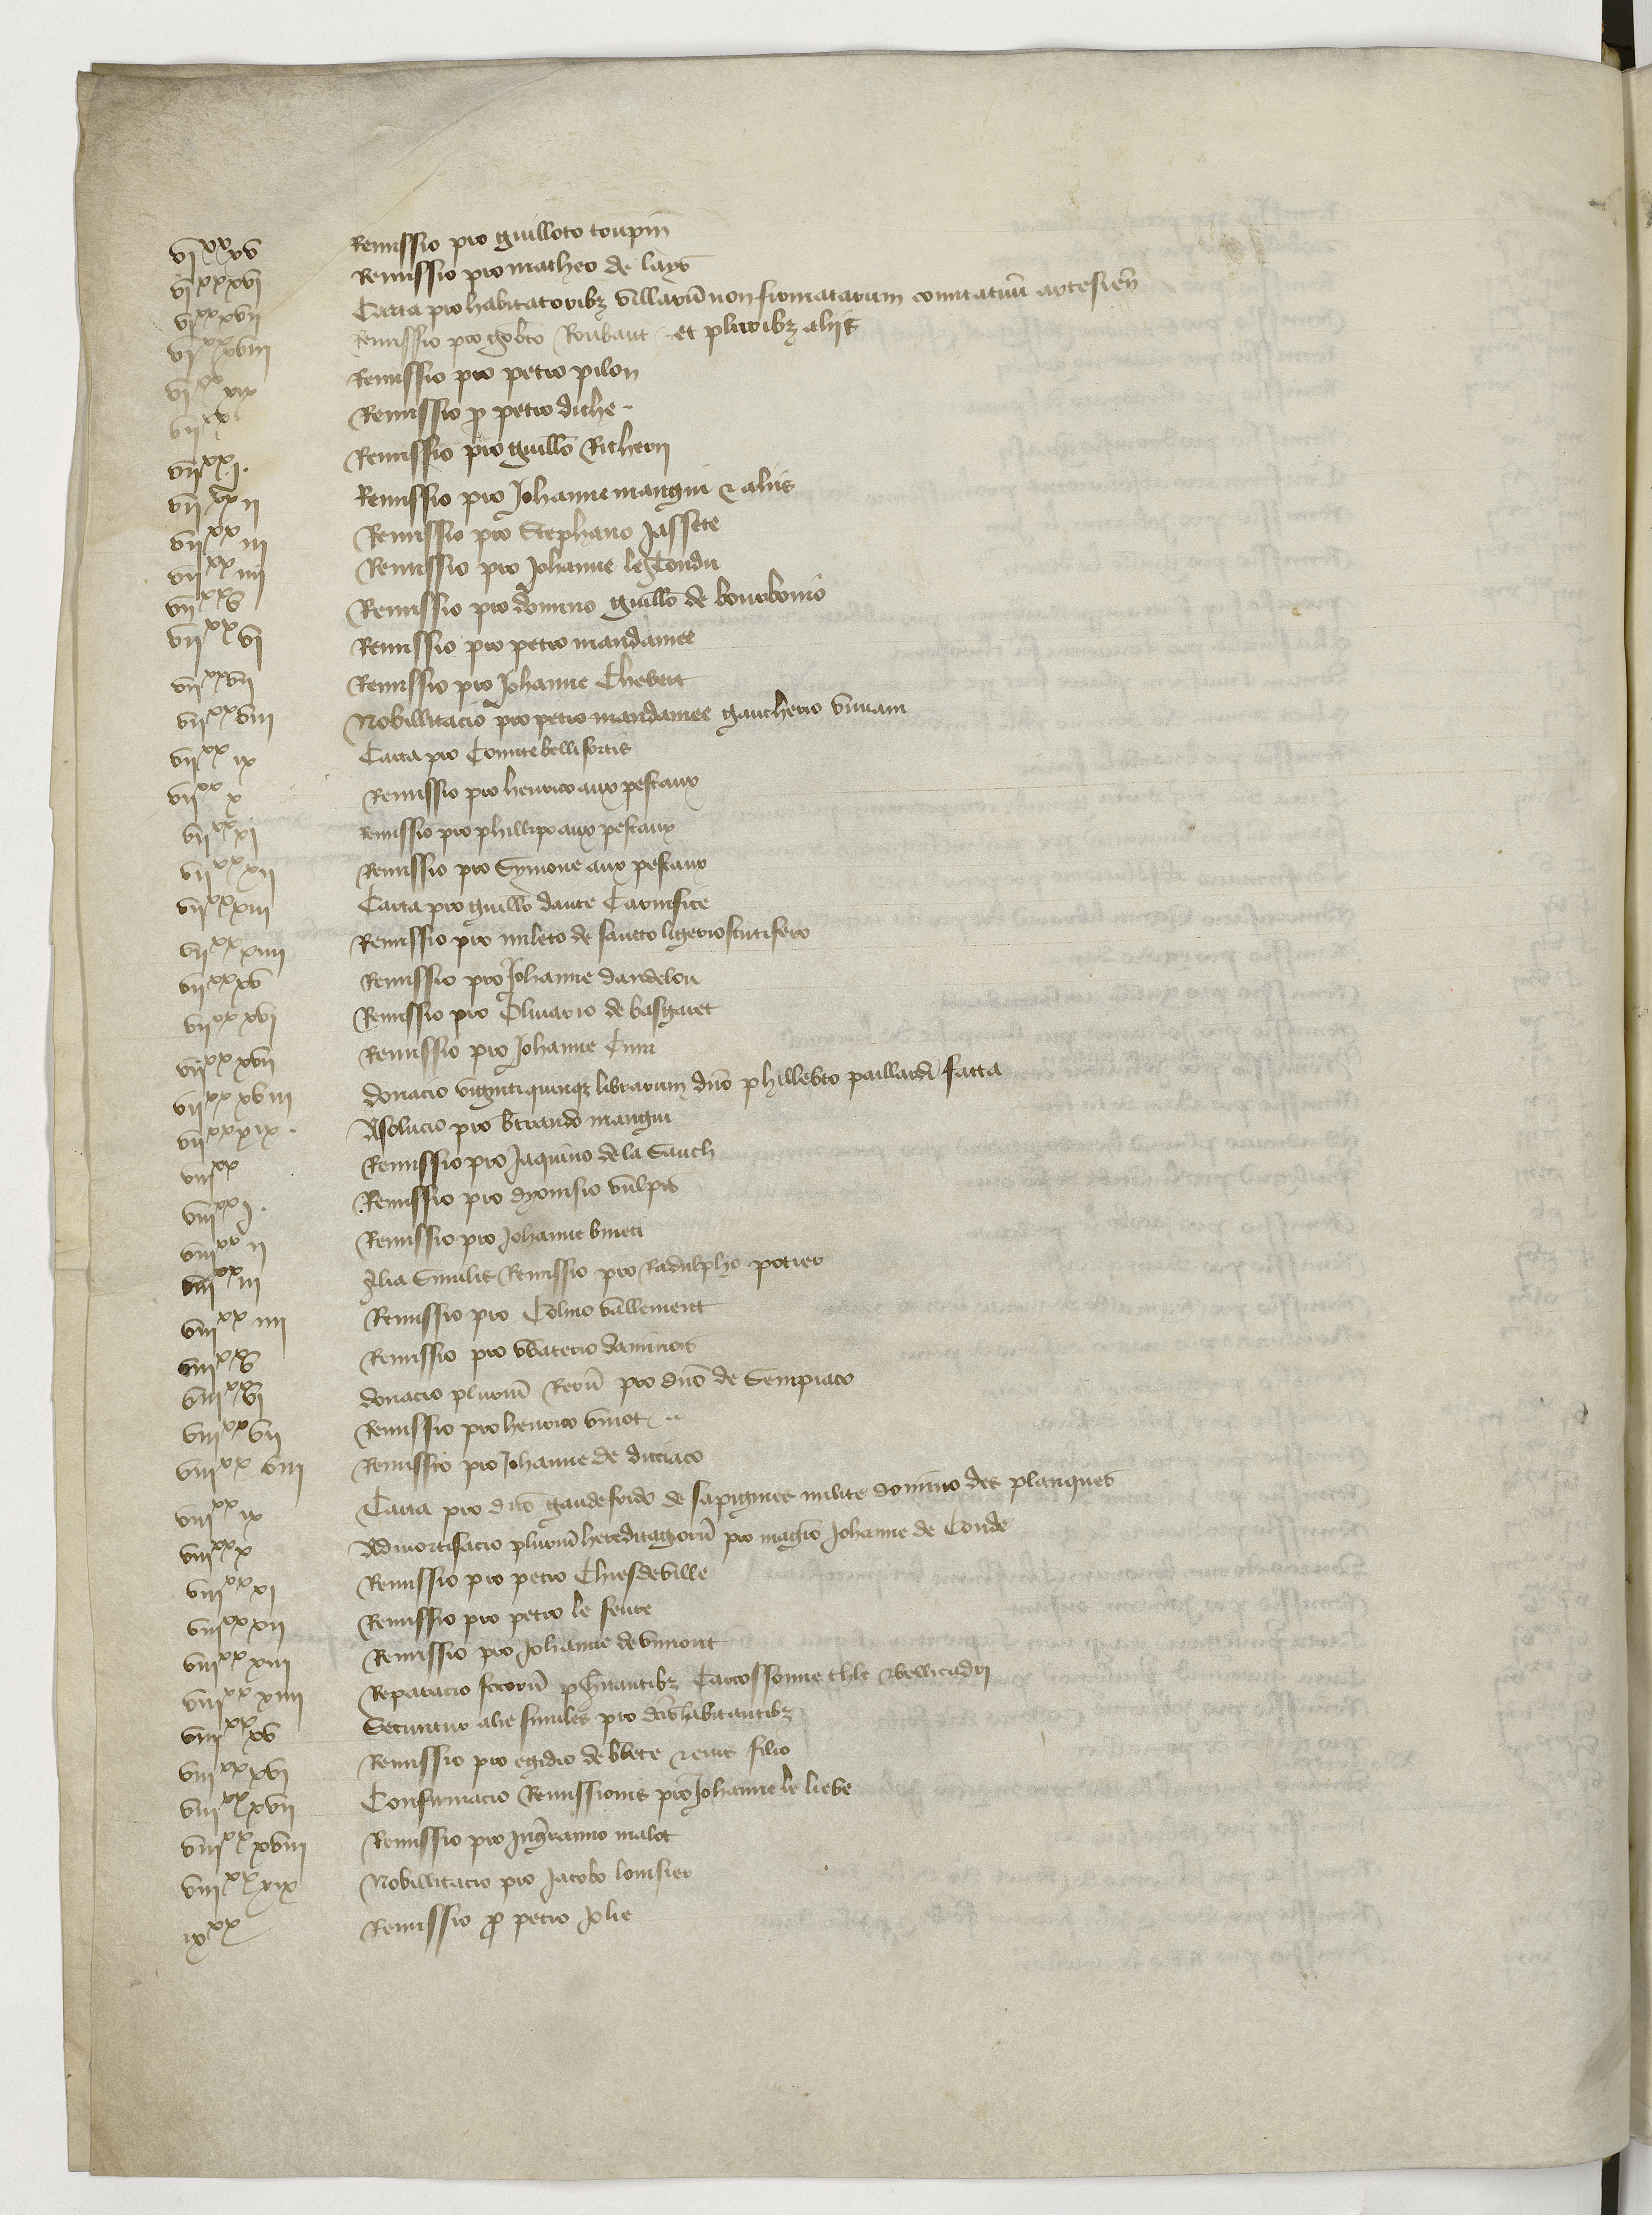 vi^xx xv Remissio pro guilloto toupin
vi^xx xvi Remissio pro matheo de lays
vi^xx xvii Carta pro habitatoribz villarū non firmatarum comitatuū artesien̄
vi^xx xviii Remissio pro gobto Roubaut et pluribz aliis
vi^xx xix Remissio pro petro pilon
vii^xx Remissio p̄ petro diche
vii^xx j. Remissio pro guill̄o Richerii
vii^xx ii Remissio pro Johanne mangin & aliis
vii^xx iii Remissio pro Stephano Jassete
vii^xx iiii Remissio pro Johanne le Tondu
vii^xx v Remissio pro domino guill̄o de bourbonio
vii^xx vi Remissio pro petro mandamee
vii^xx vii Remissio pro Johanne Chevert
vii^xx viii Nobillitacio pro petro mandamee gaucherio
vii^xx ix Carta pro Comite bellifortis
vii^xx x Remissio pro henrico aux pestaux
vii^xx xi Remissio pro phillipo aux pestaux
vii^xx xii Remissio pro Symone aux pestaux
vii^xx xiii Carta pro guill̄o dante Carnifice
vii^xx xiiii Remissio pro mileto de sancto ligerio scutifero
vii^xx xv Remissio pro Johanne dandelou
vii^xx xvi Remissio pro Olivario de basgaret
vii^xx xvii Remissio pro Johanne
vii^xx xviii donacio viginti quinqz librarum dn̄o phillebto paillardi facta
vii^xx xix. Absolucio pro btrando mangin
viii^xx Remissio pro Jaquino de la Sauch
viii^xx j. Remissio pro dyonisio vulpis
viii^xx ii Remissio pro Johanne
viii^xx iii Alia similis Remissio pro Radulpho potier
viii^xx iiii Remissio pro Colino vallement
viii^xx v Remissio pro Watero daminois
viii^xx vi donacio pluriū Rerū pro dn̄o de Sempiaco
viii^xx vii Remissio pro henrico vinot
viii^xx viii Remissio pro Johanne de dicciaco
viii^xx ix Carta pro dn̄o gaudefrido de sapignies milite domino des planques
viii^xx x Admortisacio pluriū hereditagiorū pro magrō Johanne de Conde
viii^xx xi Remissio pro petro Chiefdeville
viii^xx xii Remissio pro petro le fevre
viii^xx xiii Remissio pro Johanne de vimont
viii^xx xiiii Reparacio focorū p hitantibz Carcossonne
viii^xx xv Secuntur alie similes pro dc̄is habitantibz
viii^xx xvi Remissio pro egidio de & eius filio
viii^xx xvii Confirmacio Remissionis pro Johanne le lieve
viii^xx xviii Remissio pro Ingeranno malet
viii^xx xix Nobillitacio pro Jacobo lonisier
ix^xx Remissio p̄ petro Jolie